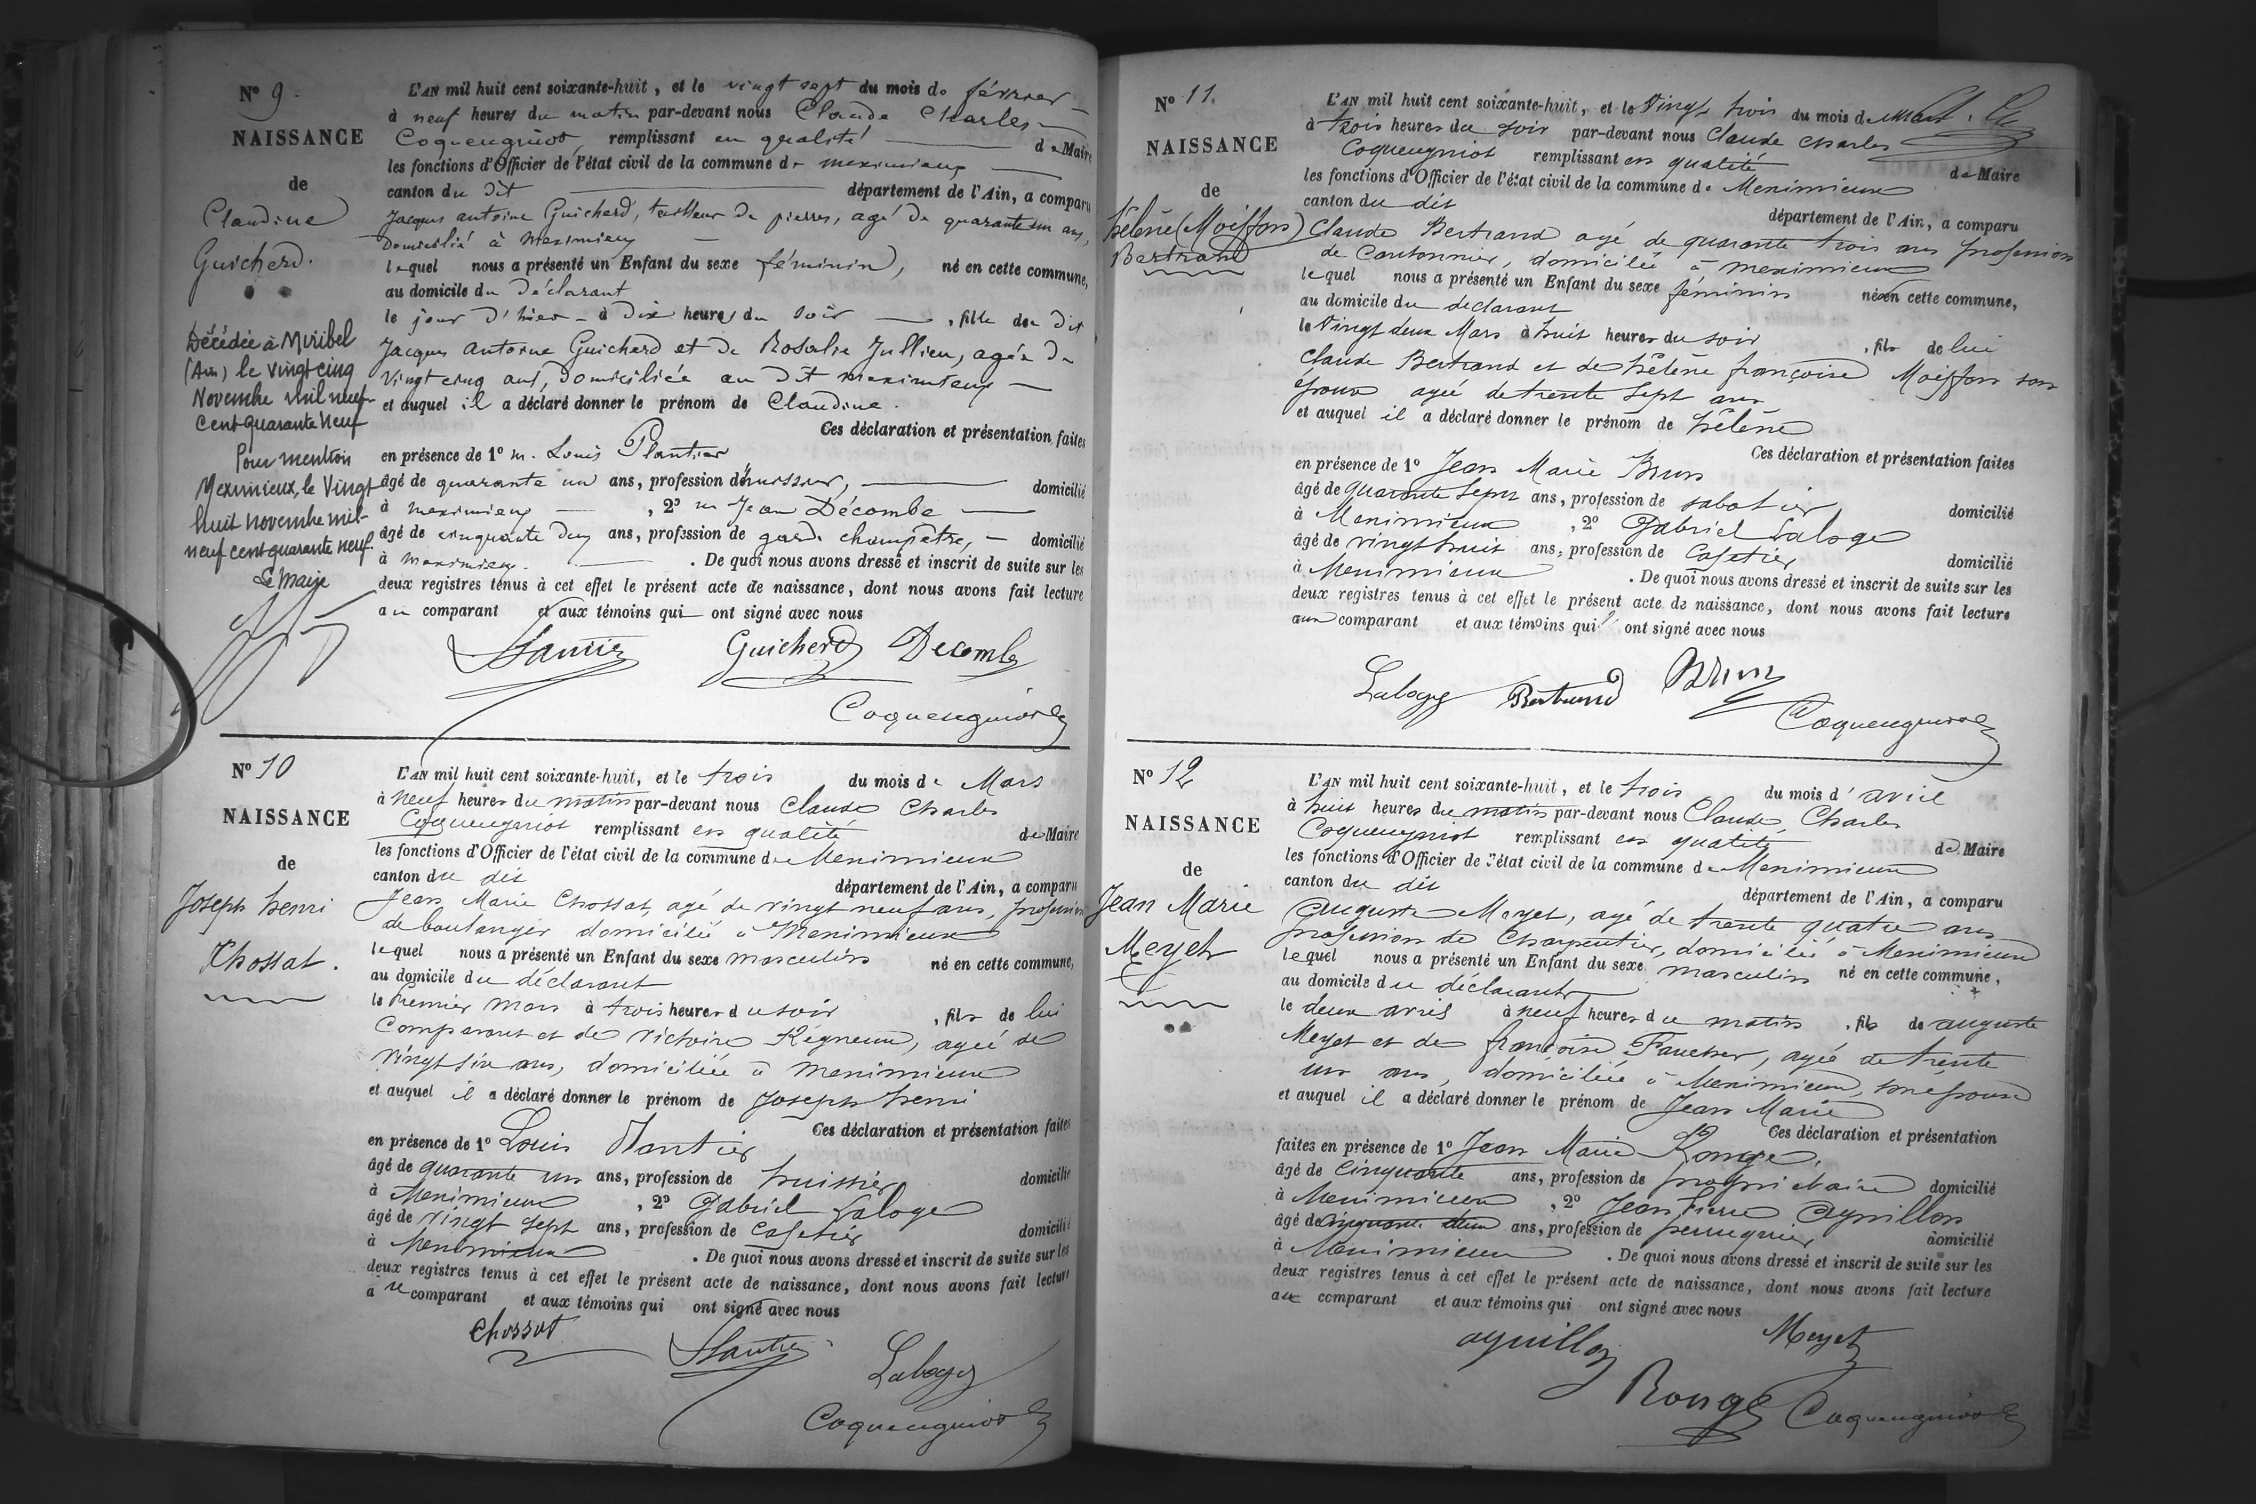 N° 9.
NAISSANCE
de
Claudine
Guicherd.
Décédée à Miribel
(Ain) le vingt cinq
Novembre mil neuf
cent quarante neuf
Pour mention
Meximieux, le vingt
huit novembre mil
neuf cent quarante neuf.
Le Maire
L'AN mil huit cent soixante-huit, et le vingt sept du mois de février
à neuf heures du matin par-devant nous Claude Charles
Coquengniot, remplissant en qualité de Maire
les fonctions d'Officier de l'état civil de la commune de meximieux
canton du dit département de l'Ain, a comparu
Jacques antoine Guicherd, tailleur de pierres, agé de quarante un ans,
Domicilié à meximieux
lequel nous a présenté un Enfant du sexe féminin, né en cette commune,
au domicile du Déclarant
le jour d'hier à Dix heures du soir, fille du Dit
Jacques antoine Guicherd et de Rosalie Jullien, agée de
Vingt cinq ans, Domiciliée au Dit meximieux
et auquel il a déclaré donner le prénom de Claudine.
Ces déclaration et présentation faites
en présence de 1° m. Louis Plantier
âgé de quarante un ans, profession d'huissier, domicilié
à meximieux, 2° m Jean Décombe
âgé de cinquante deux ans, profession de garde champêtre, domicilié
à meximieux. De quoi nous avons dressé et inscrit de suite sur les
deux registres tenus à cet effet le présent acte de naissance, dont nous avons fait lecture
au comparant et aux témoins qui ont signé avec nous
Plantier Guicherd Decombe
Coquengniot
N° 10
NAISSANCE
de
Joseph henri
Chossat.
L'AN mil huit cent soixante-huit, et le trois du mois de Mars
à neuf heures du matin par-devant nous Claude Charles
Coquengniot remplissant en qualité de Maire
les fonctions d'Officier de l'état civil de la commune de Meximieux
canton du dit département de l'Ain, a comparu
Jean Marie Chossat, agé de vingt neuf ans, profession
de boulanger domicilié à Meximieux
lequel nous a présenté un Enfant du sexe masculin né en cette commune,
au domicile du déclarant
le Premier mars à trois heures du soir, fils de lui
Comparant et de Victoire Régneux, agée de
vingt six ans, domiciliée à meximieux
et auquel il a déclaré donner le prénom de Joseph henri
Ces déclaration et présentation faites
en présence de 1° Louis Plantier
âgé de quarante un ans, profession de huissier domicilié
à Meximieux, 2° Gabriel Laloge
âgé de vingt sept ans, profession de Cafetier domicilié
à Meximieux. De quoi nous avons dressé et inscrit de suite sur les
deux registres tenus à cet effet le présent acte de naissance, dont nous avons fait lecture
au comparant et aux témoins qui ont signé avec nous
Chossat Plantier Laloge
Coquengniot
N° 11.
NAISSANCE
de
hélène (Moiffon)
Bertrand
L'AN mil huit cent soixante-huit, et le Vingt trois du mois de Mars
à trois heures du soir par-devant nous Claude Charles
Coquengniot remplissant en qualité de Maire
les fonctions d'Officier de l'état civil de la commune de Meximieux
canton du dit département de l'Ain, a comparu
Claude Bertrand agé de quarante trois ans profession
de Cantonnier, domicilié à meximieux
lequel nous a présenté un Enfant du sexe féminin né en cette commune,
au domicile du déclarant
le Vingt deux Mars à huit heures du soir, fils de lui
Claude Bertrand et de hélène françoise Moiffon son
épouse agée de trente sept ans
et auquel il a déclaré donner le prénom de hélène
Ces déclaration et présentation faites
en présence de 1° Jean Marie Brun
âgé de quarante sept ans, profession de sabotier domicilié
à Meximieux, 2° Gabriel Laloge
âgé de vingt huit ans, profession de Cafetier domicilié
à Meximieux. De quoi nous avons dressé et inscrit de suite sur les
deux registres tenus à cet effet le présent acte de naissance, dont nous avons fait lecture
aux comparant et aux témoins qui ont signé avec nous
Laloge Bertrand Brun
Coquengniot
N° 12
NAISSANCE
de
Jean Marie
Meyet
L'AN mil huit cent soixante-huit, et le trois du mois d'avril
à huit heures du matin par-devant nous Claude Charles
Coquengniot remplissant en qualité de Maire
les fonctions d'Officier de l'état civil de la commune de Meximieux
canton du dit département de l'Ain, a comparu
Auguste Meyet, agé de trente quatre ans
profession de Charpentier, domicilié à Meximieux
lequel nous a présenté un Enfant du sexe masculin né en cette commune,
au domicile du déclarant
le deux avril à neuf heures du matin, fils de auguste
Meyet et de françoise Faucher, agée de trente
un ans, domiciliée à Meximieux, son épouse
et auquel il a déclaré donner le prénom de Jean Marie
Ces déclaration et présentation
faites en présence de 1° Jean Marie Rouge,
âgé de Cinquante ans, profession de propriétaire domicilié
à Meximieux, 2° Jean Pierre Aguillon
âgé de cinquante deux ans, profession de perruquier domicilié
à Meximieux. De quoi nous avons dressé et inscrit de suite sur les
deux registres tenus à cet effet le présent acte de naissance, dont nous avons fait lecture
au comparant et aux témoins qui ont signé avec nous
aguillon Meyet
Rouge Coquengniot